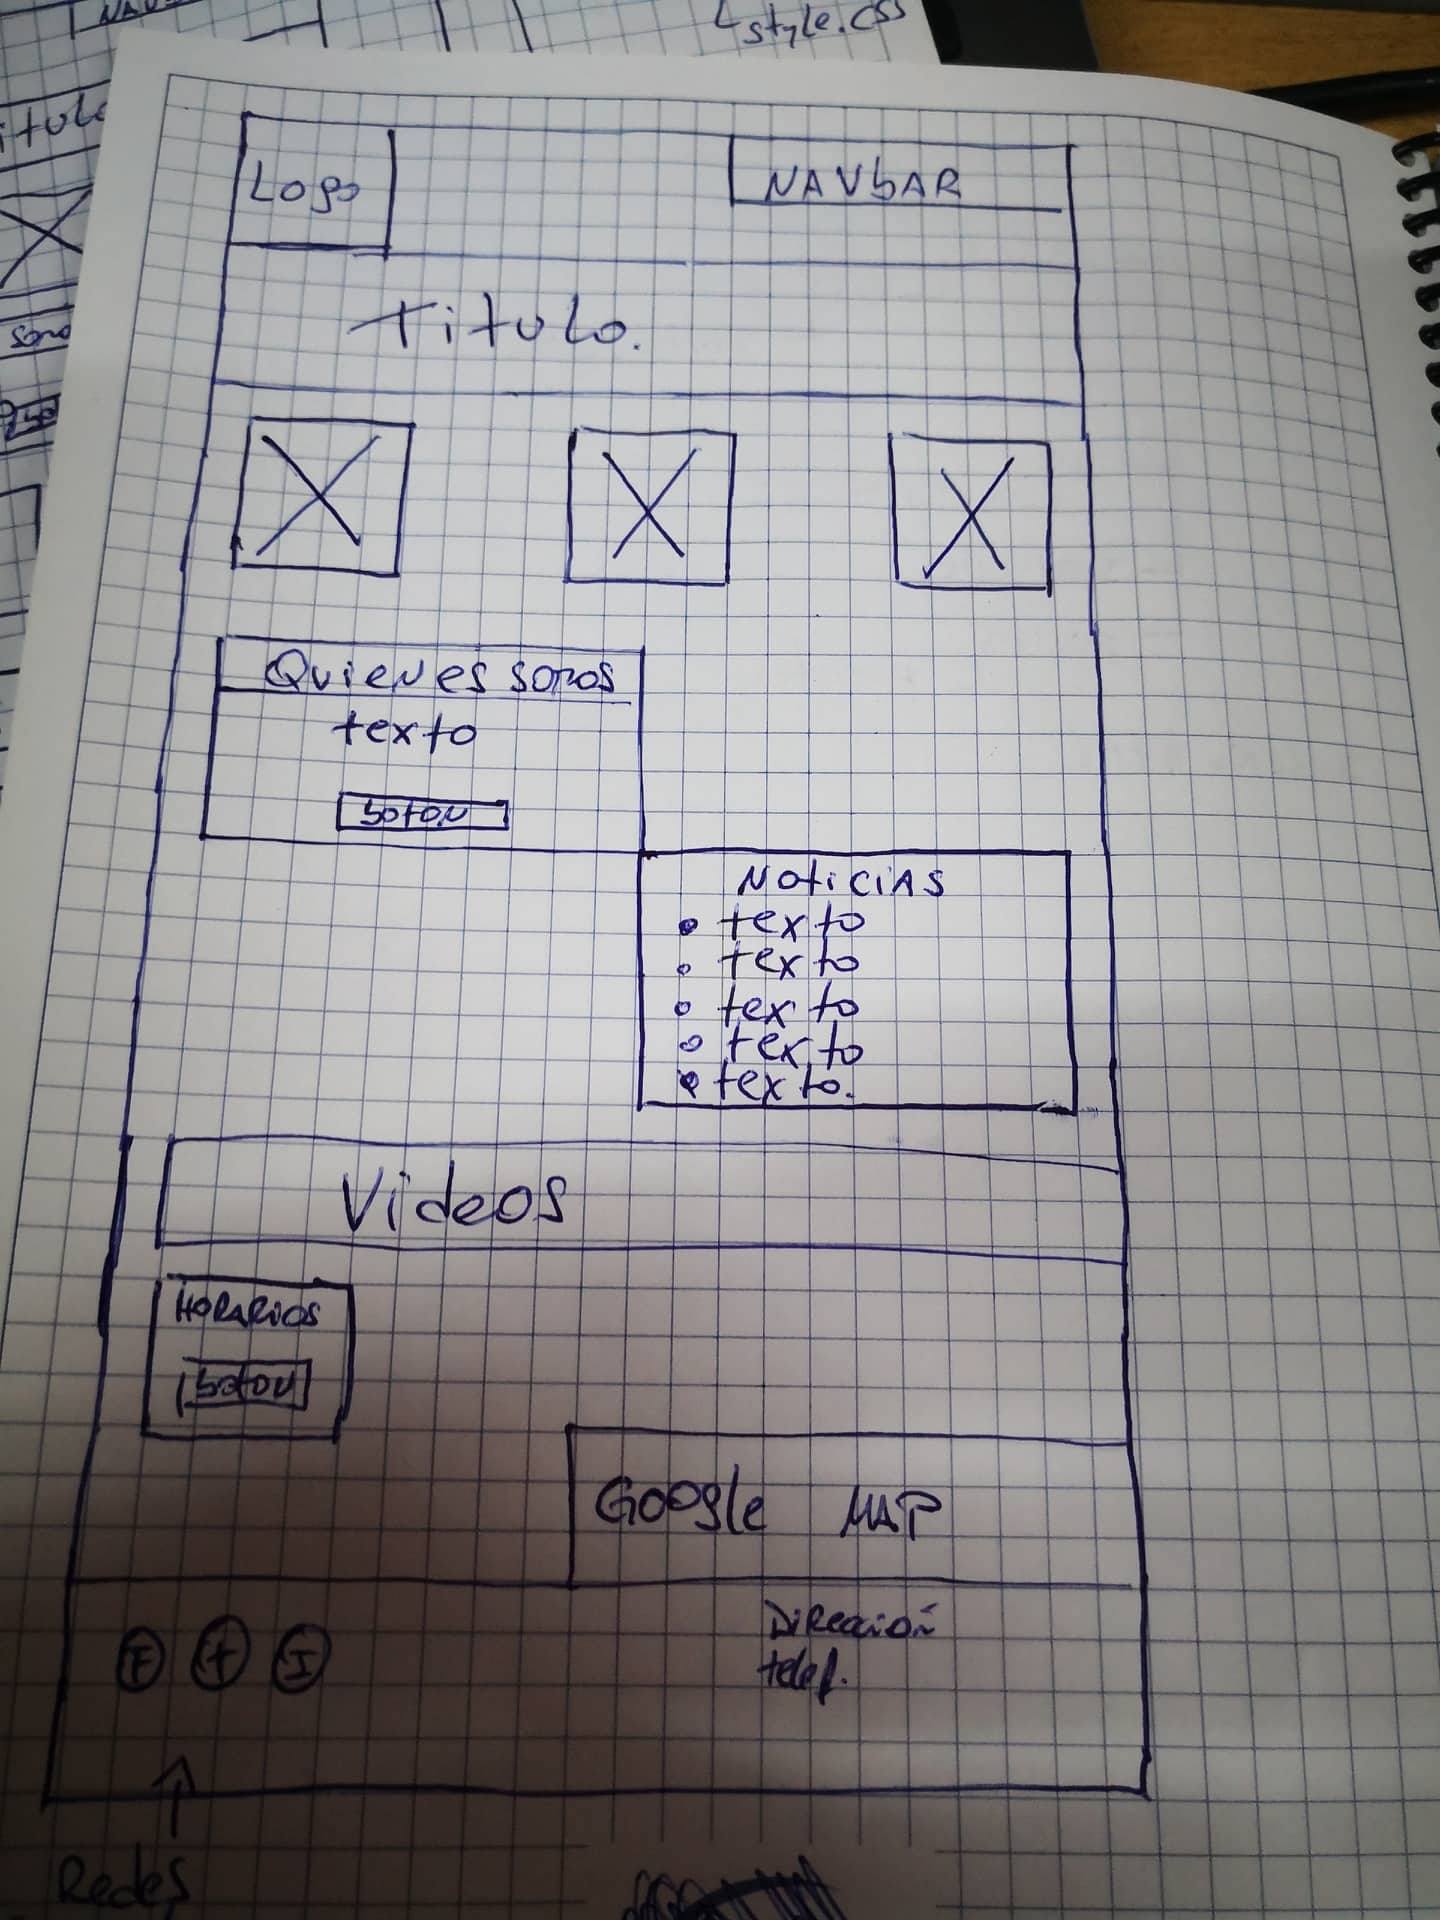 style.css
Logo
NAVbAR
Titulo.
Quienes somos
texto
boton
Noticias
texto
texto
texto
texto
texto.
Videos
Horarios
boton
Google MAP
F t I
Dirección
telef.
Redes